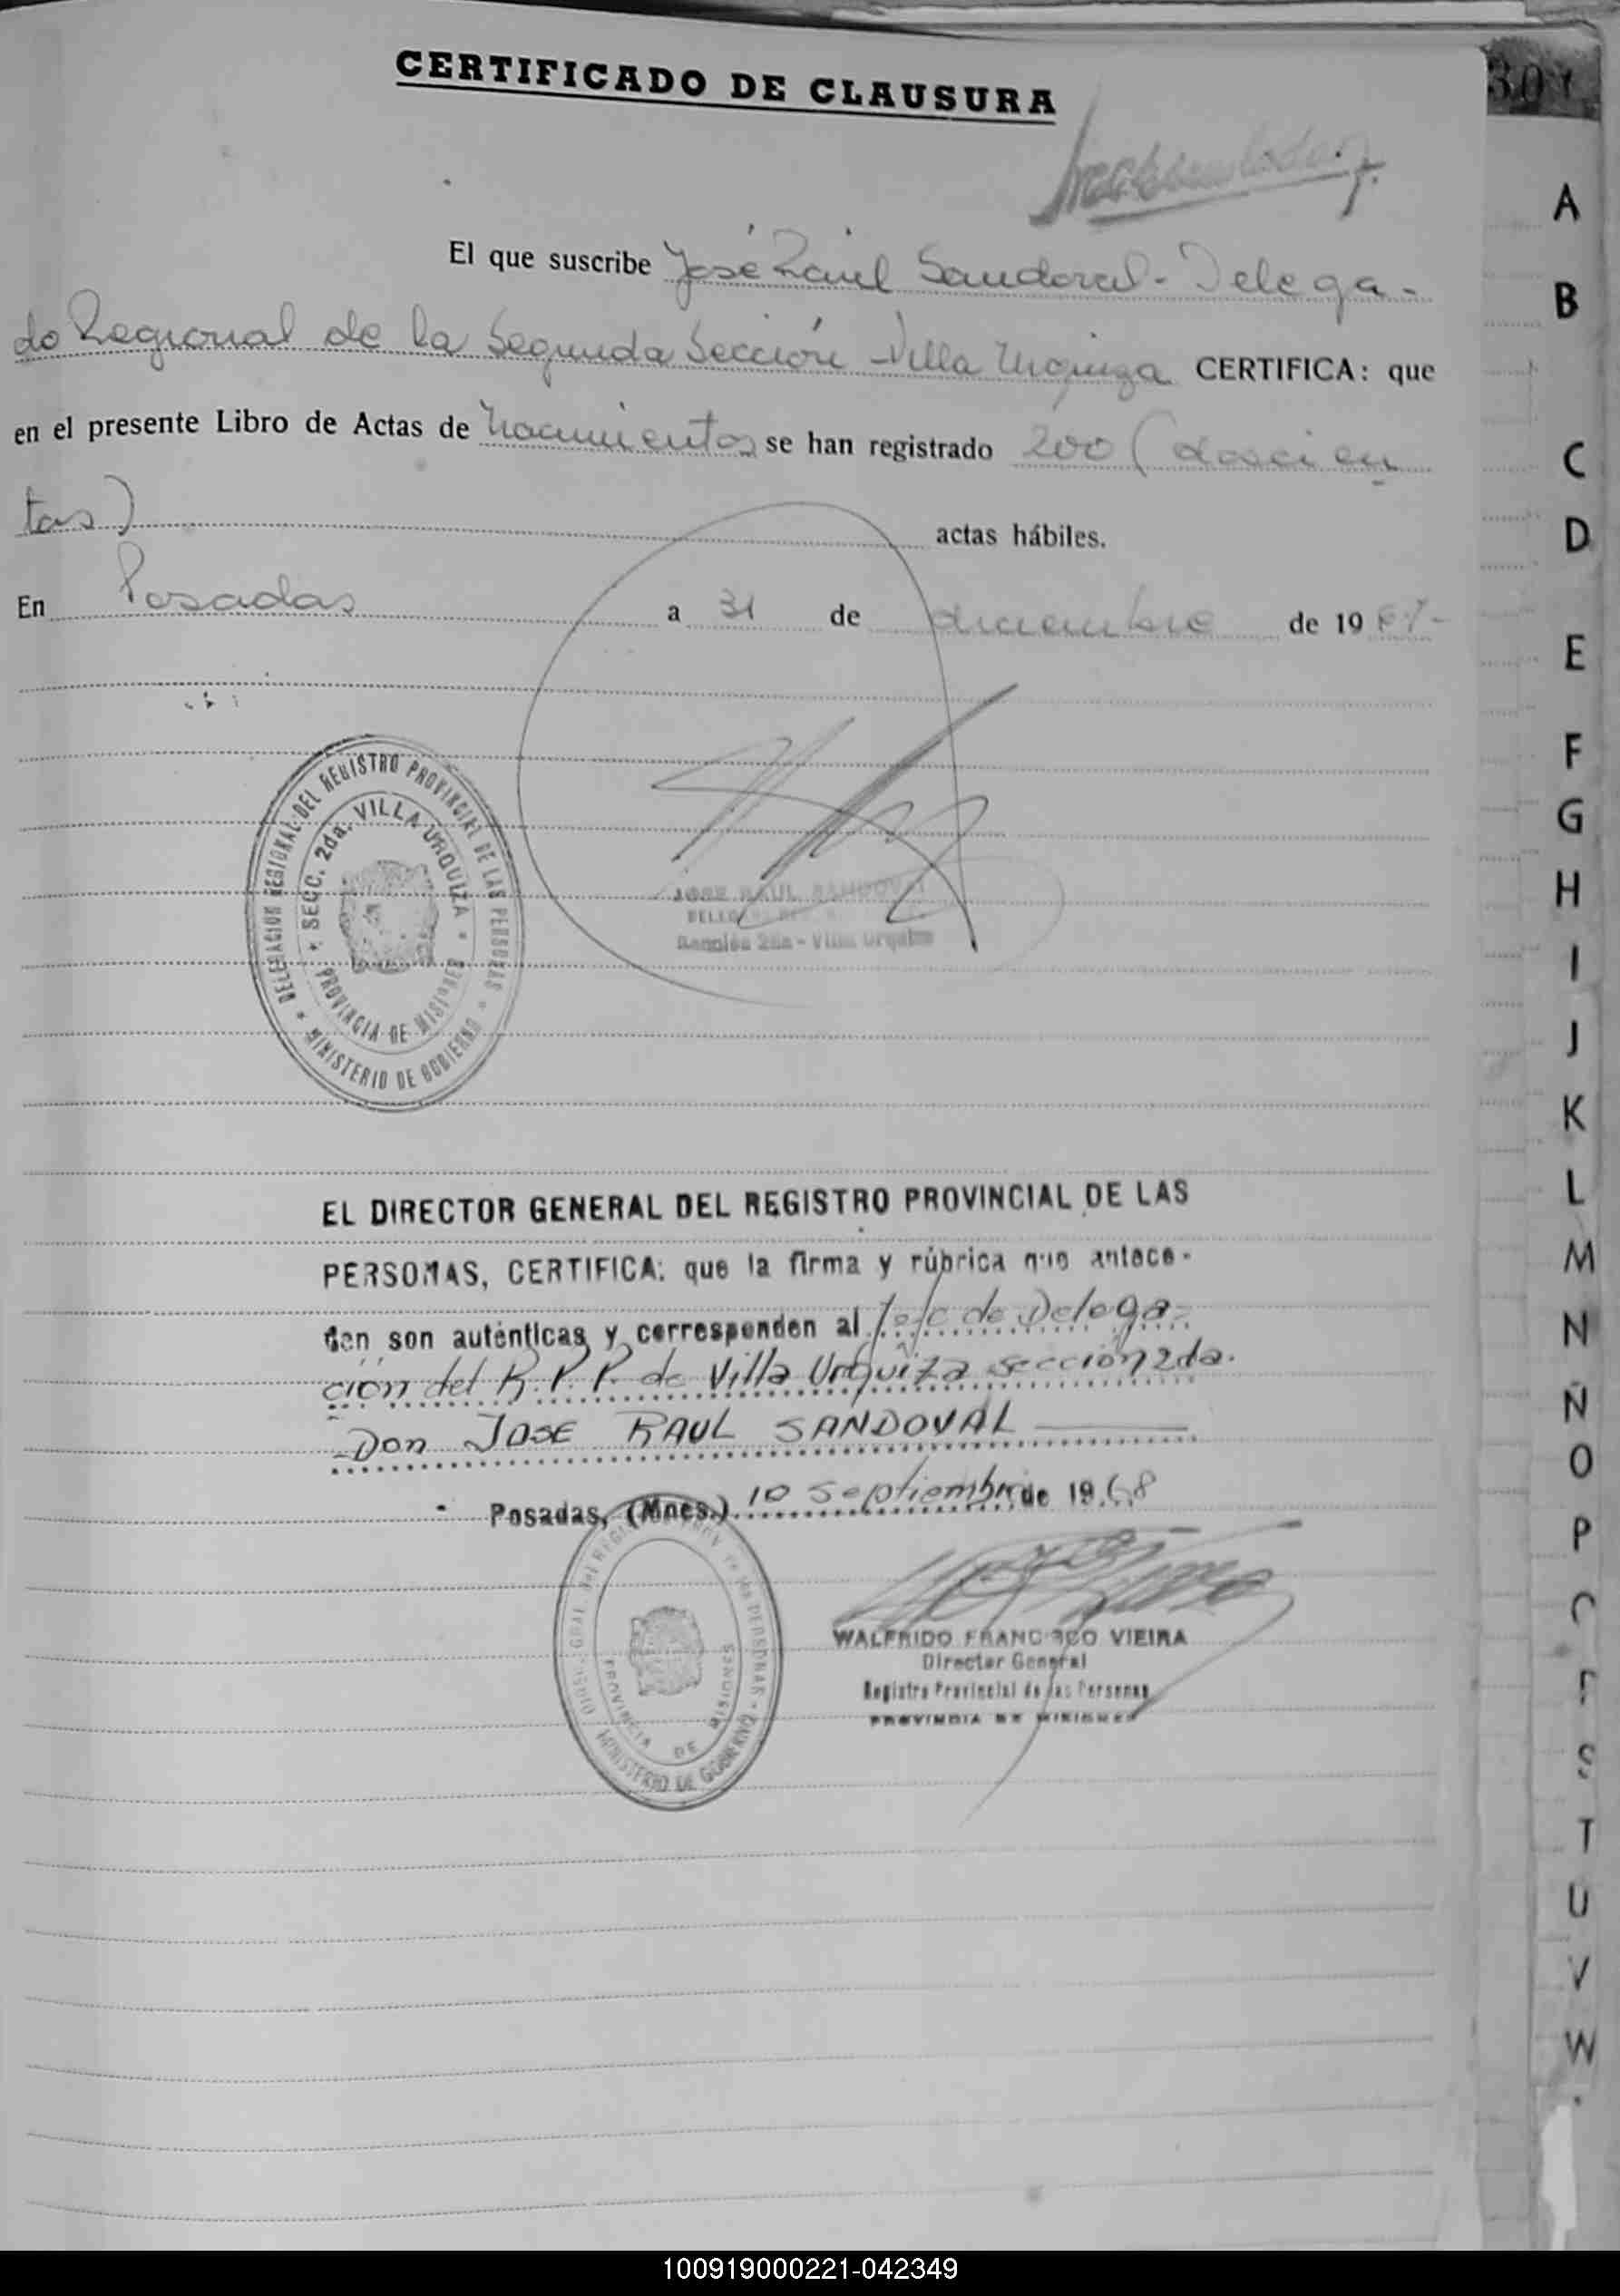 CERTIFICADO DE CLAUSURA
El que suscribe José Raúl Sandoval - Delega-
do Regional de la Segunda Sección - Villa Urquiza CERTIFICA: que
en el presente Libro de Actas de Nacimientos se han registrado 200 (doscien
tas) actas hábiles.
En Posadas a 31 de diciembre de 1967-
DELEGACION REGIONAL DEL REGISTRO PROVINCIAL DE LAS PERSONAS
* MINISTERIO DE GOBIERNO *
* SECC. 2da. VILLA URQUIZA *
PROVINCIA DE MISIONES
JOSE RAUL SANDOVAL
Sección 2da - Villa Urquiza
EL DIRECTOR GENERAL DEL REGISTRO PROVINCIAL DE LAS
PERSONAS, CERTIFICA: que la firma y rúbrica que antece-
den son auténticas y corresponden al Jefe de Delega-
ción del R.P.P. de Villa Urquiza sección 2da.
Don JOSE RAUL SANDOVAL
Posadas, (Mnes.) 10 Septiembre de 1968
PROVINCIA DE MISIONES
MINISTERIO DE GOBIERNO
WALFRIDO FRANCISCO VIEIRA
Director General
Registro Provincial de las Personas
PROVINCIA DE MISIONES
A
B
C
D
E
F
G
H
I
J
K
L
M
N
Ñ
O
P
S
T
U
V
W
100919000221-042349